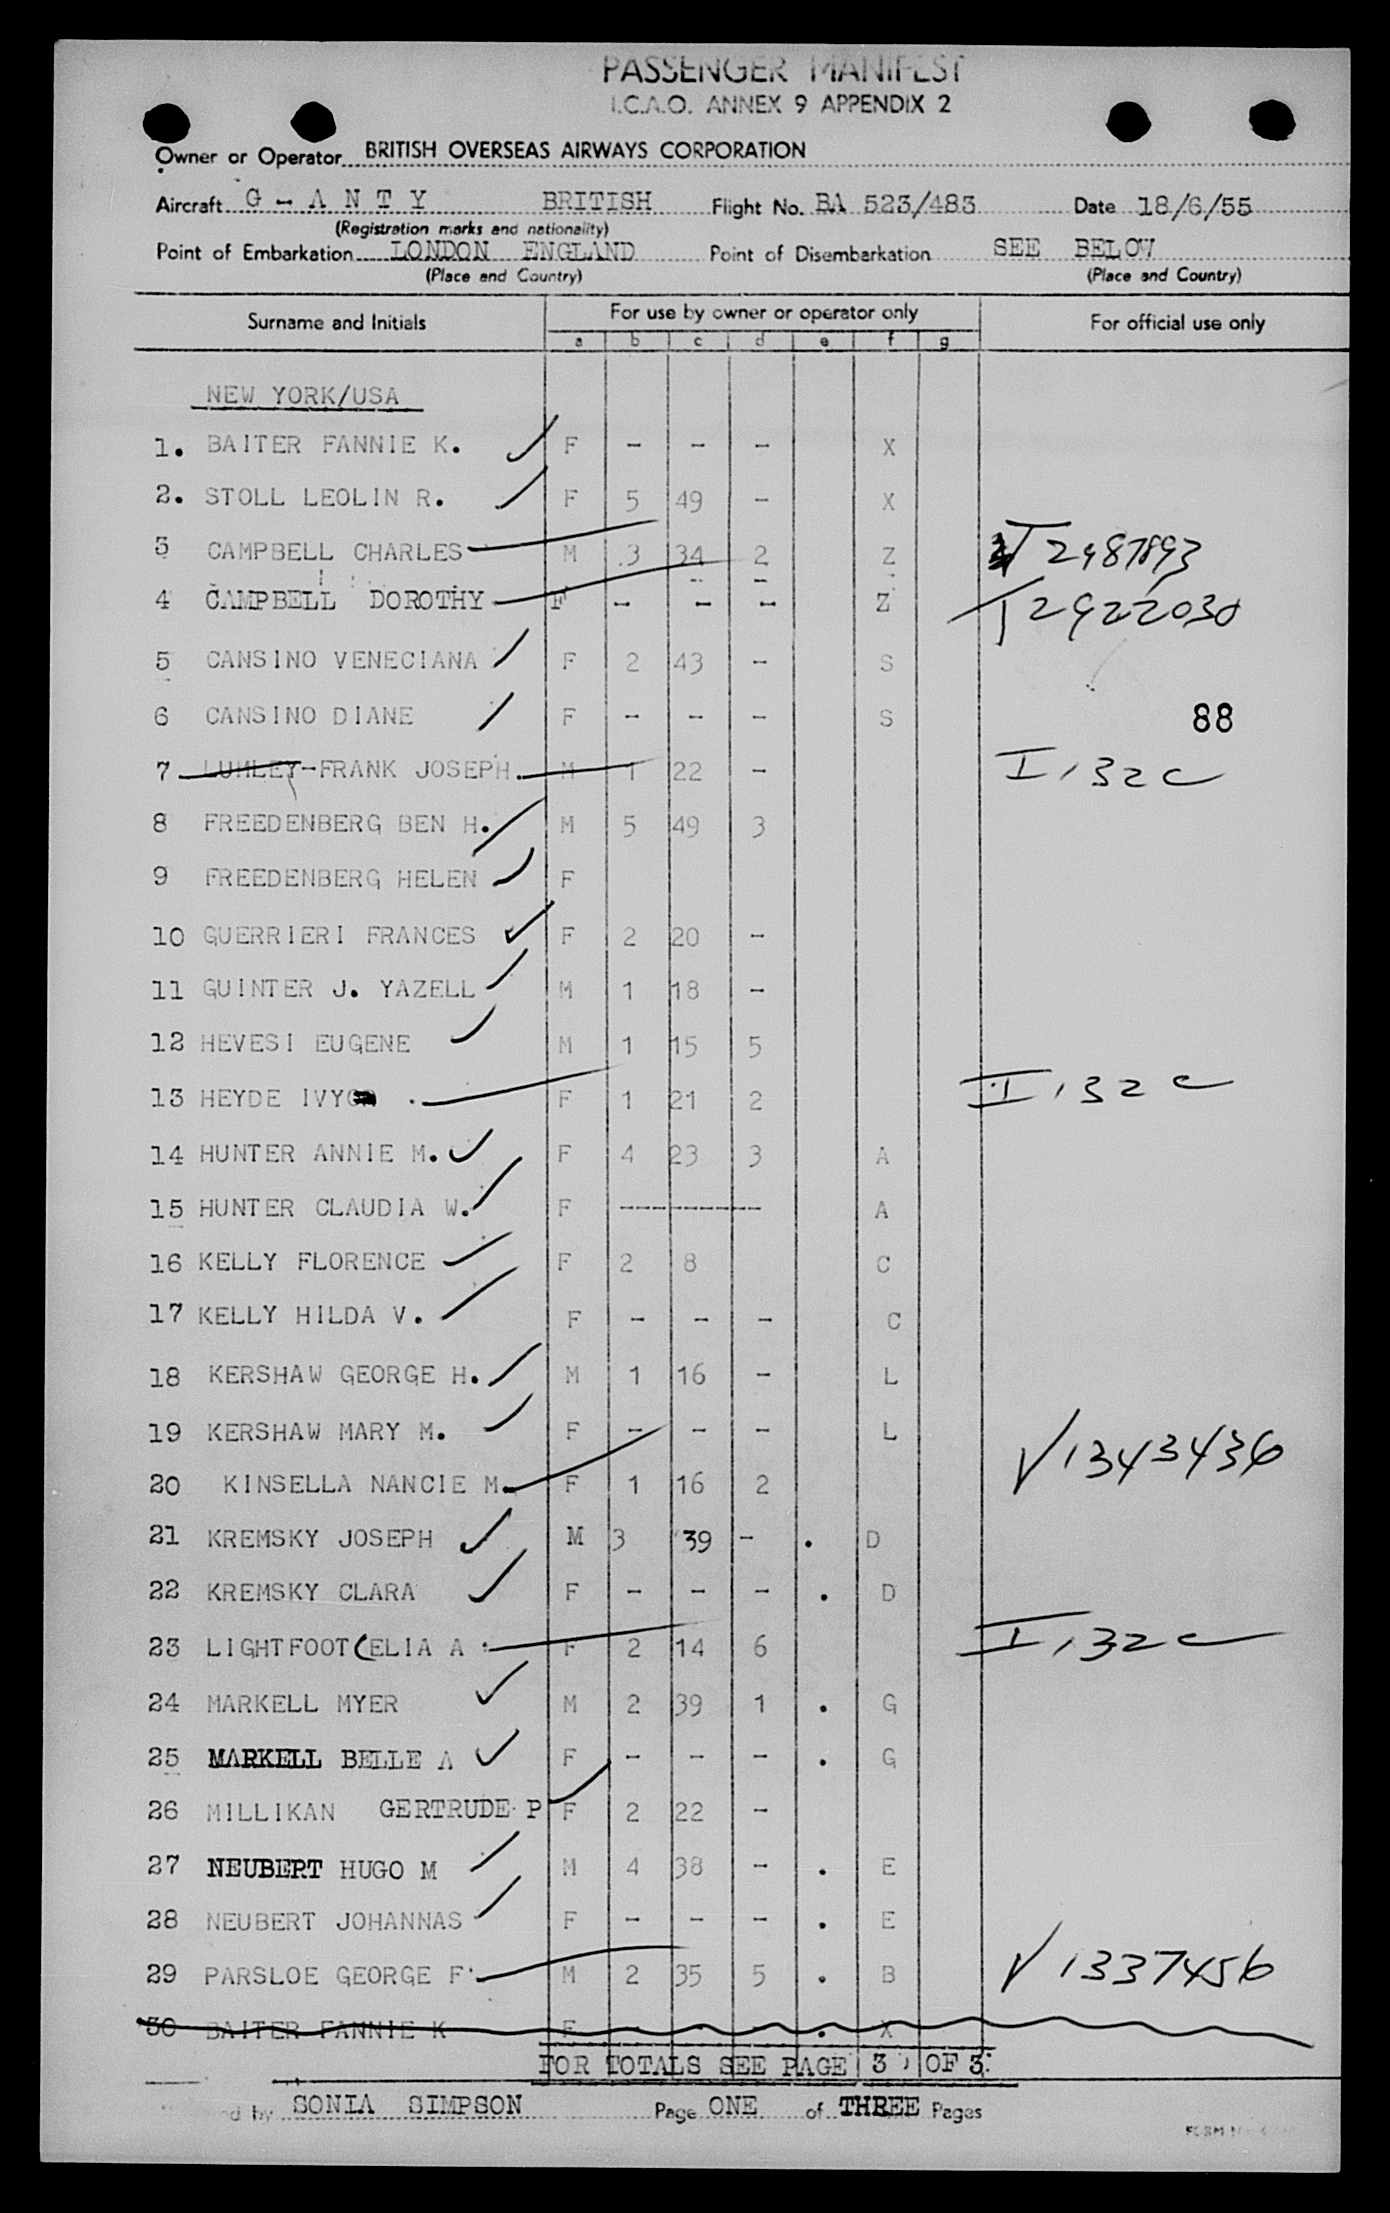 PASSENGER MANIFEST
I.C.A.O. ANNEX 9 APPENDIX 2
Owner or Operator BRITISH OVERSEAS AIRWAYS CORPORATION
Aircraft G - A N T Y BRITISH Flight No. BA 523/483 Date 18/6/55
(Registration marks and nationality)
Point of Embarkation LONDON ENGLAND Point of Disembarkation SEE BELOW
(Place and Country) (Place and Country)
Surname and Initials For use by owner or operator only For official use only
a b c d e f g
NEW YORK/USA
1. BAITER FANNIE K. F - - - X
2. STOLL LEOLIN R. F 5 49 - X
3 CAMPBELL CHARLES M 3 34 2 Z T 2487893
4 CAMPBELL DOROTHY F - - - Z T 2922030
5 CANSINO VENECIANA F 2 43 - S
6 CANSINO DIANE F - - - S 88
7 LUMLEY-FRANK JOSEPH M 1 22 - I 132c
8 FREEDENBERG BEN H. M 5 49 3
9 FREEDENBERG HELEN F
10 GUERRIERI FRANCES F 2 20 -
11 GUINTER J. YAZELL M 1 18 -
12 HEVESI EUGENE M 1 15 5
13 HEYDE IVY F 1 21 2 I 132c
14 HUNTER ANNIE M. F 4 23 3 A
15 HUNTER CLAUDIA W. F ---------- A
16 KELLY FLORENCE F 2 8 C
17 KELLY HILDA V. F - - - C
18 KERSHAW GEORGE H. M 1 16 - L
19 KERSHAW MARY M. F - - - L
20 KINSELLA NANCIE M. F 1 16 2 V1343436
21 KREMSKY JOSEPH M 3 39 - . D
22 KREMSKY CLARA F - - - . D
23 LIGHTFOOT CELIA A F 2 14 6 I 132c
24 MARKELL MYER M 2 39 1 . G
25 MARKELL BELLE A F - - - . G
26 MILLIKAN GERTRUDE P F 2 22 -
27 NEUBERT HUGO M M 4 38 - . E
28 NEUBERT JOHANNAS F - - - . E
29 PARSLOE GEORGE F M 2 35 5 . B V1337456
30 BAITER FANNIE K F - - - . X
FOR TOTALS SEE PAGE 3 OF 3
by SONIA SIMPSON Page ONE of THREE Pages